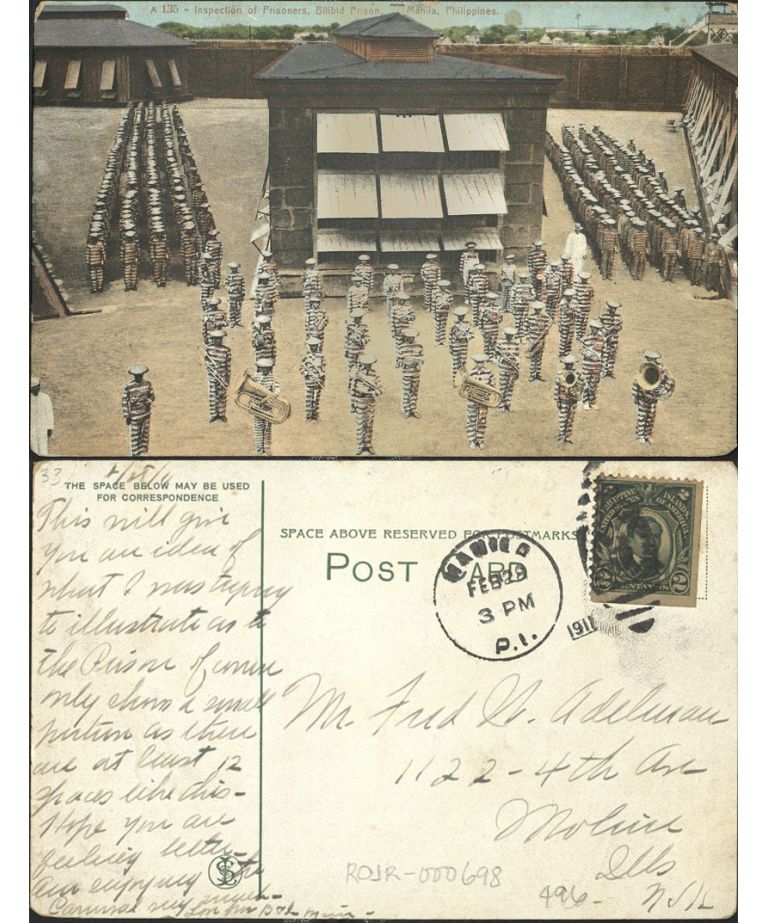 A 135 - Inspection of Prisoners, Bilibid Prison, Manila, Philippines.
33
THE SPACE BELOW MAY BE USED
FOR CORRESPONDENCE
This will give
you an idea of
what I was trying
to illustrate as to
the Prison of course
only shows a small
portion as there
are at least 12
spaces like this -
Hope you are
feeling better -
Am enjoying the
Carnival very much -
SPACE ABOVE RESERVED FOR POSTMARKS
POST CARD
MANILA
FEB 28
3 PM
P.I.
1911
PHILIPPINE ISLANDS
UNITED STATES OF AMERICA
2 CENTAVOS 2
Mr. Fred W. Adelman
1122 - 4th Ave
Moline
Ills
U.S.A.
ROJR-000698
496-